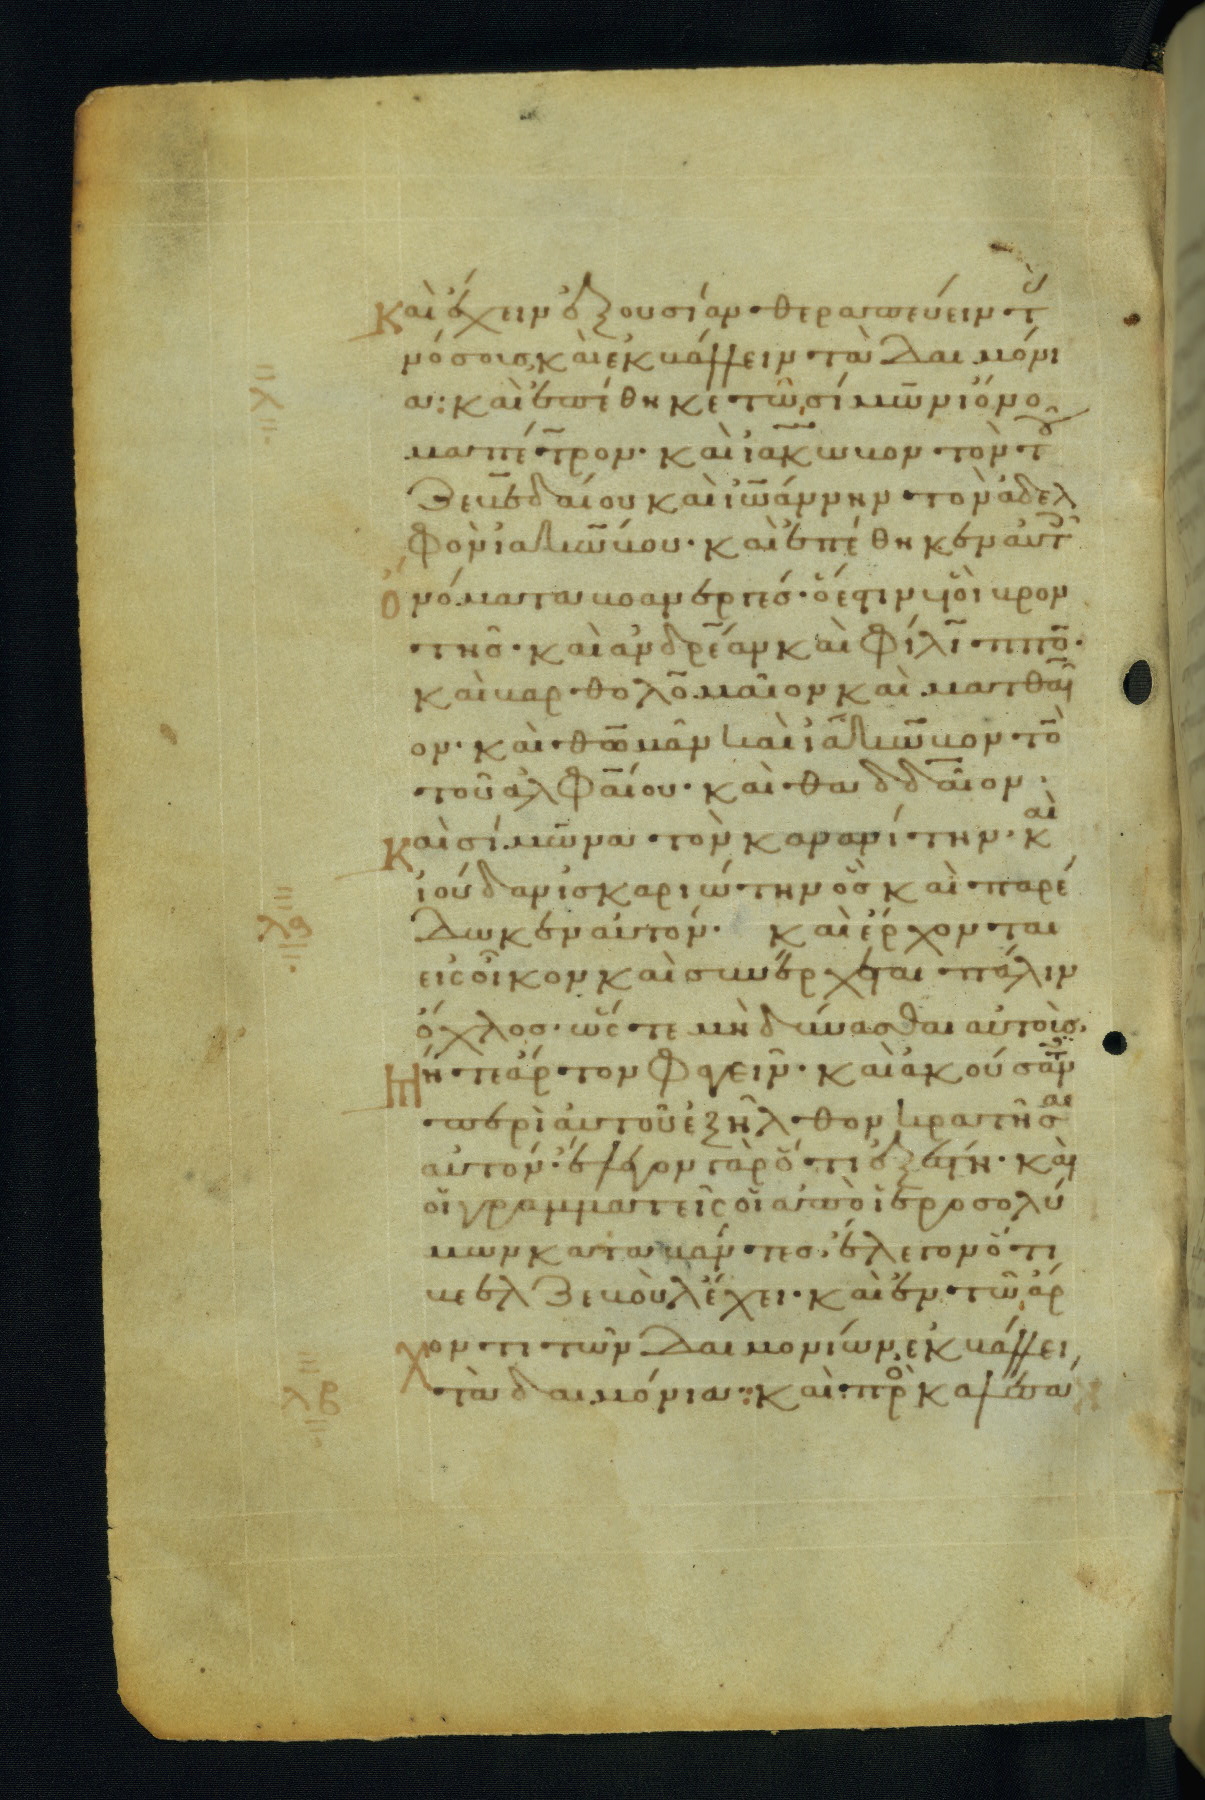 Καὶ ἔχειν ἐξουσίαν θεραπεύειν τ(ὰς)
νόσους, καὶ ἐκβάλλειν τὰ δαιμόνι
α: καὶ ἐπέθηκε τῶ σίμωνι ὄνο
μα πέτρον. καὶ ϊάκωβον τὸν τοῦ
Ζεβεδαίου καὶ ϊωάννην τὸν ἀδελ
φὸν ϊακώβου. καὶ ἐπέθηκεν αὐτοῖς
ὀνόματα βοανεργές. ὅ ἐστιν υἱοὶ βρον
τῆς. καὶ ἀνδρέαν καὶ φίλιππον.
καὶ βαρθολομαῖον καὶ ματθαῖ
ον. καὶ θωμᾶν καὶ ϊάκωβον τὸν
τοῦ ἀλφαίου. καὶ θαδδαῖον.
Καὶ σίμωνα τὸν κανανίτην. καὶ
ἰούδαν ἰσκαριώτην ὃς καὶ παρέ
δωκεν αὐτόν. καὶ ἔρχονται
εἰς οἶκον καὶ συνέρχεται πάλιν
ὄχλος. ὥστε μὴ δύνασθαι αὐτοὺς.
Μήτε ἄρτον φαγεῖν. καὶ ἀκούσαντ(ες)
περὶ αὐτοῦ ἐξῆλθον κρατῆσαι
αὐτόν. ἔλεγον γὰρ ὅτι ἐξέστη. καὶ
οἱ γραμματεῖς οἱ ἀπὸ ἱεροσολύ
μων καταβάντες. ἔλεγον ὅτι
βεελζεβοὺλ ἔχει. καὶ ἐν τῶ ἄρ
χοντι τῶν δαιμονίων, ἐκβάλλει,
τὰ δαιμόνια: καὶ προσκαλεσά
λ
λα
λβ